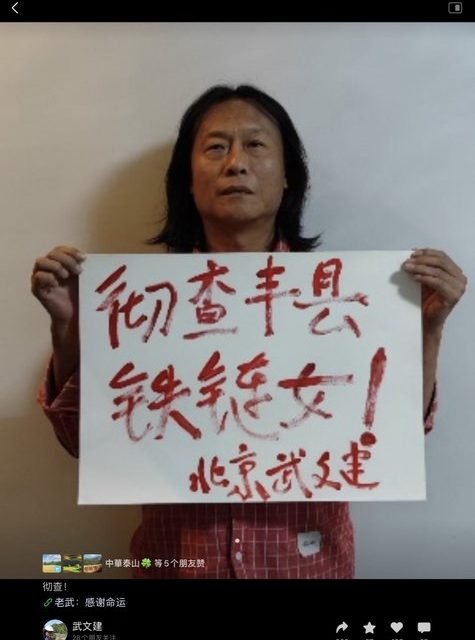 彻查丰县
铁链女！
北京武文建
中華泰山🍀 等5个朋友赞
彻查！
老武：感谢命运
武文建
28个朋友关注